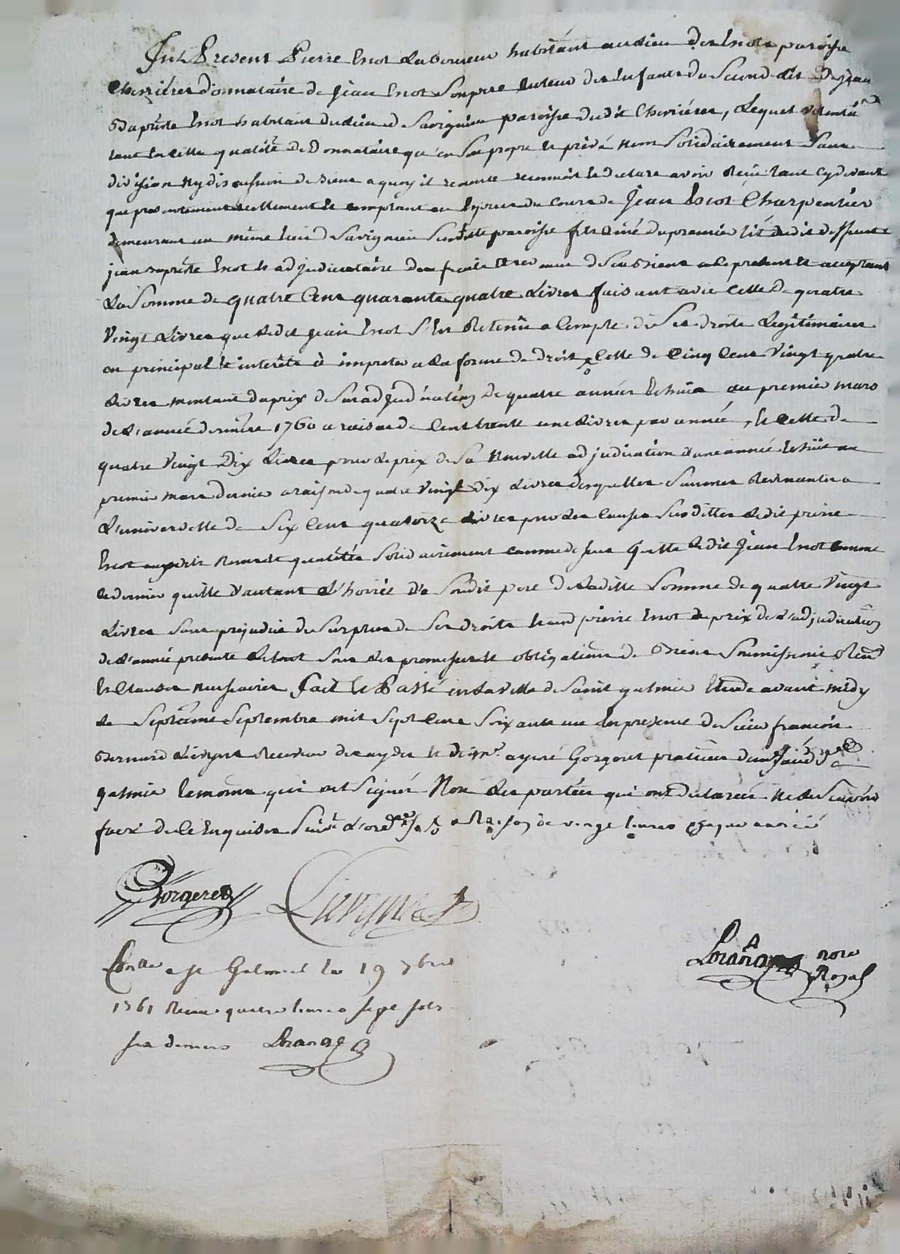 Fut Present Pierre Enot Laboureur habitant au lieu des Enots paroisse
Chevrières donnataire de Jean Enot son pere tuteur des Enfants du Second lit de Jean
Baptiste Enot habitant du lieu de Savignieu paroisse dudit Chevriéres, Lequel
tant En cette qualité de Donnataire qu'en son propre et privé nom Solidairement Sans
division ny discussion de biens a quoy il renonce reconnoit et declare avoir Reçu tant cy devant
que presentement reellement et comptant au cours de Jean Enot Charpentier
demeurant au même lieu de Savignieu Susditte paroisse fils ainé du premier lit dudit deffunt
jean Baptiste Enot et adjudicataire des fruits et revenus de ses biens a ce present et acceptant
La Somme de quatre Cens quarante quatre Livres faisant avec Celle de quatre
Vingt Livres que ledit Jean Enot S'est Retenue a Compte de Ses droits Legitimaires
en principal et interêts à imputer a la forme de droit Celle de Cinq Cens Vingt quatre
Livres montant du prix de son adjudication de quatre années Echues au premier mars
de L'année derniere 1760 a raison de Cent trente une Livres par année, et Celle de
quatre Vingt Dix Livres pour le prix de Sa Nouvelle adjudication d'une année Echüe au
premier mars dernier a raison de quatre Vingt dix Livres desquelles Sommes Revenantes a
L'universelle de Six Cens quatorze Livres pour les Causes Susdittes ledit pierre
Enot auxdits noms et qualités Solidairement comme dessus quitte ledit Jean Enot comme
ce dernier quitte d'autant L'hoirie de Sondit pere de laditte Somme de quatre Vingt
Livres Sans prejudice du Surplus de Ses droits et audit pierre Enot du prix de l'adjudication
de L'année presente Le tout Sous les promesses et obligations de Biens Soumissions
et Clauses necessaires Fait et Passé en la ville de Saint galmier Etude avant midy
Le Septieme Septembre mil Sept Cens Soixante un En presence de Sieur françois
Bernard Lievgne Receveur des aydes et de Aymé Gorgeret praticien dud St
galmier temoins qui ont Signé Non les parties qui ont declarées ne le Scavoir
faire de ce Enquises a Raison de vingt Livres chaque année
Gorgeret
Lievgne
not.re
Royal
Con.lle a St Galmier Le 19 7bre
1761 Reçu quatre livres sept sols
six deniers